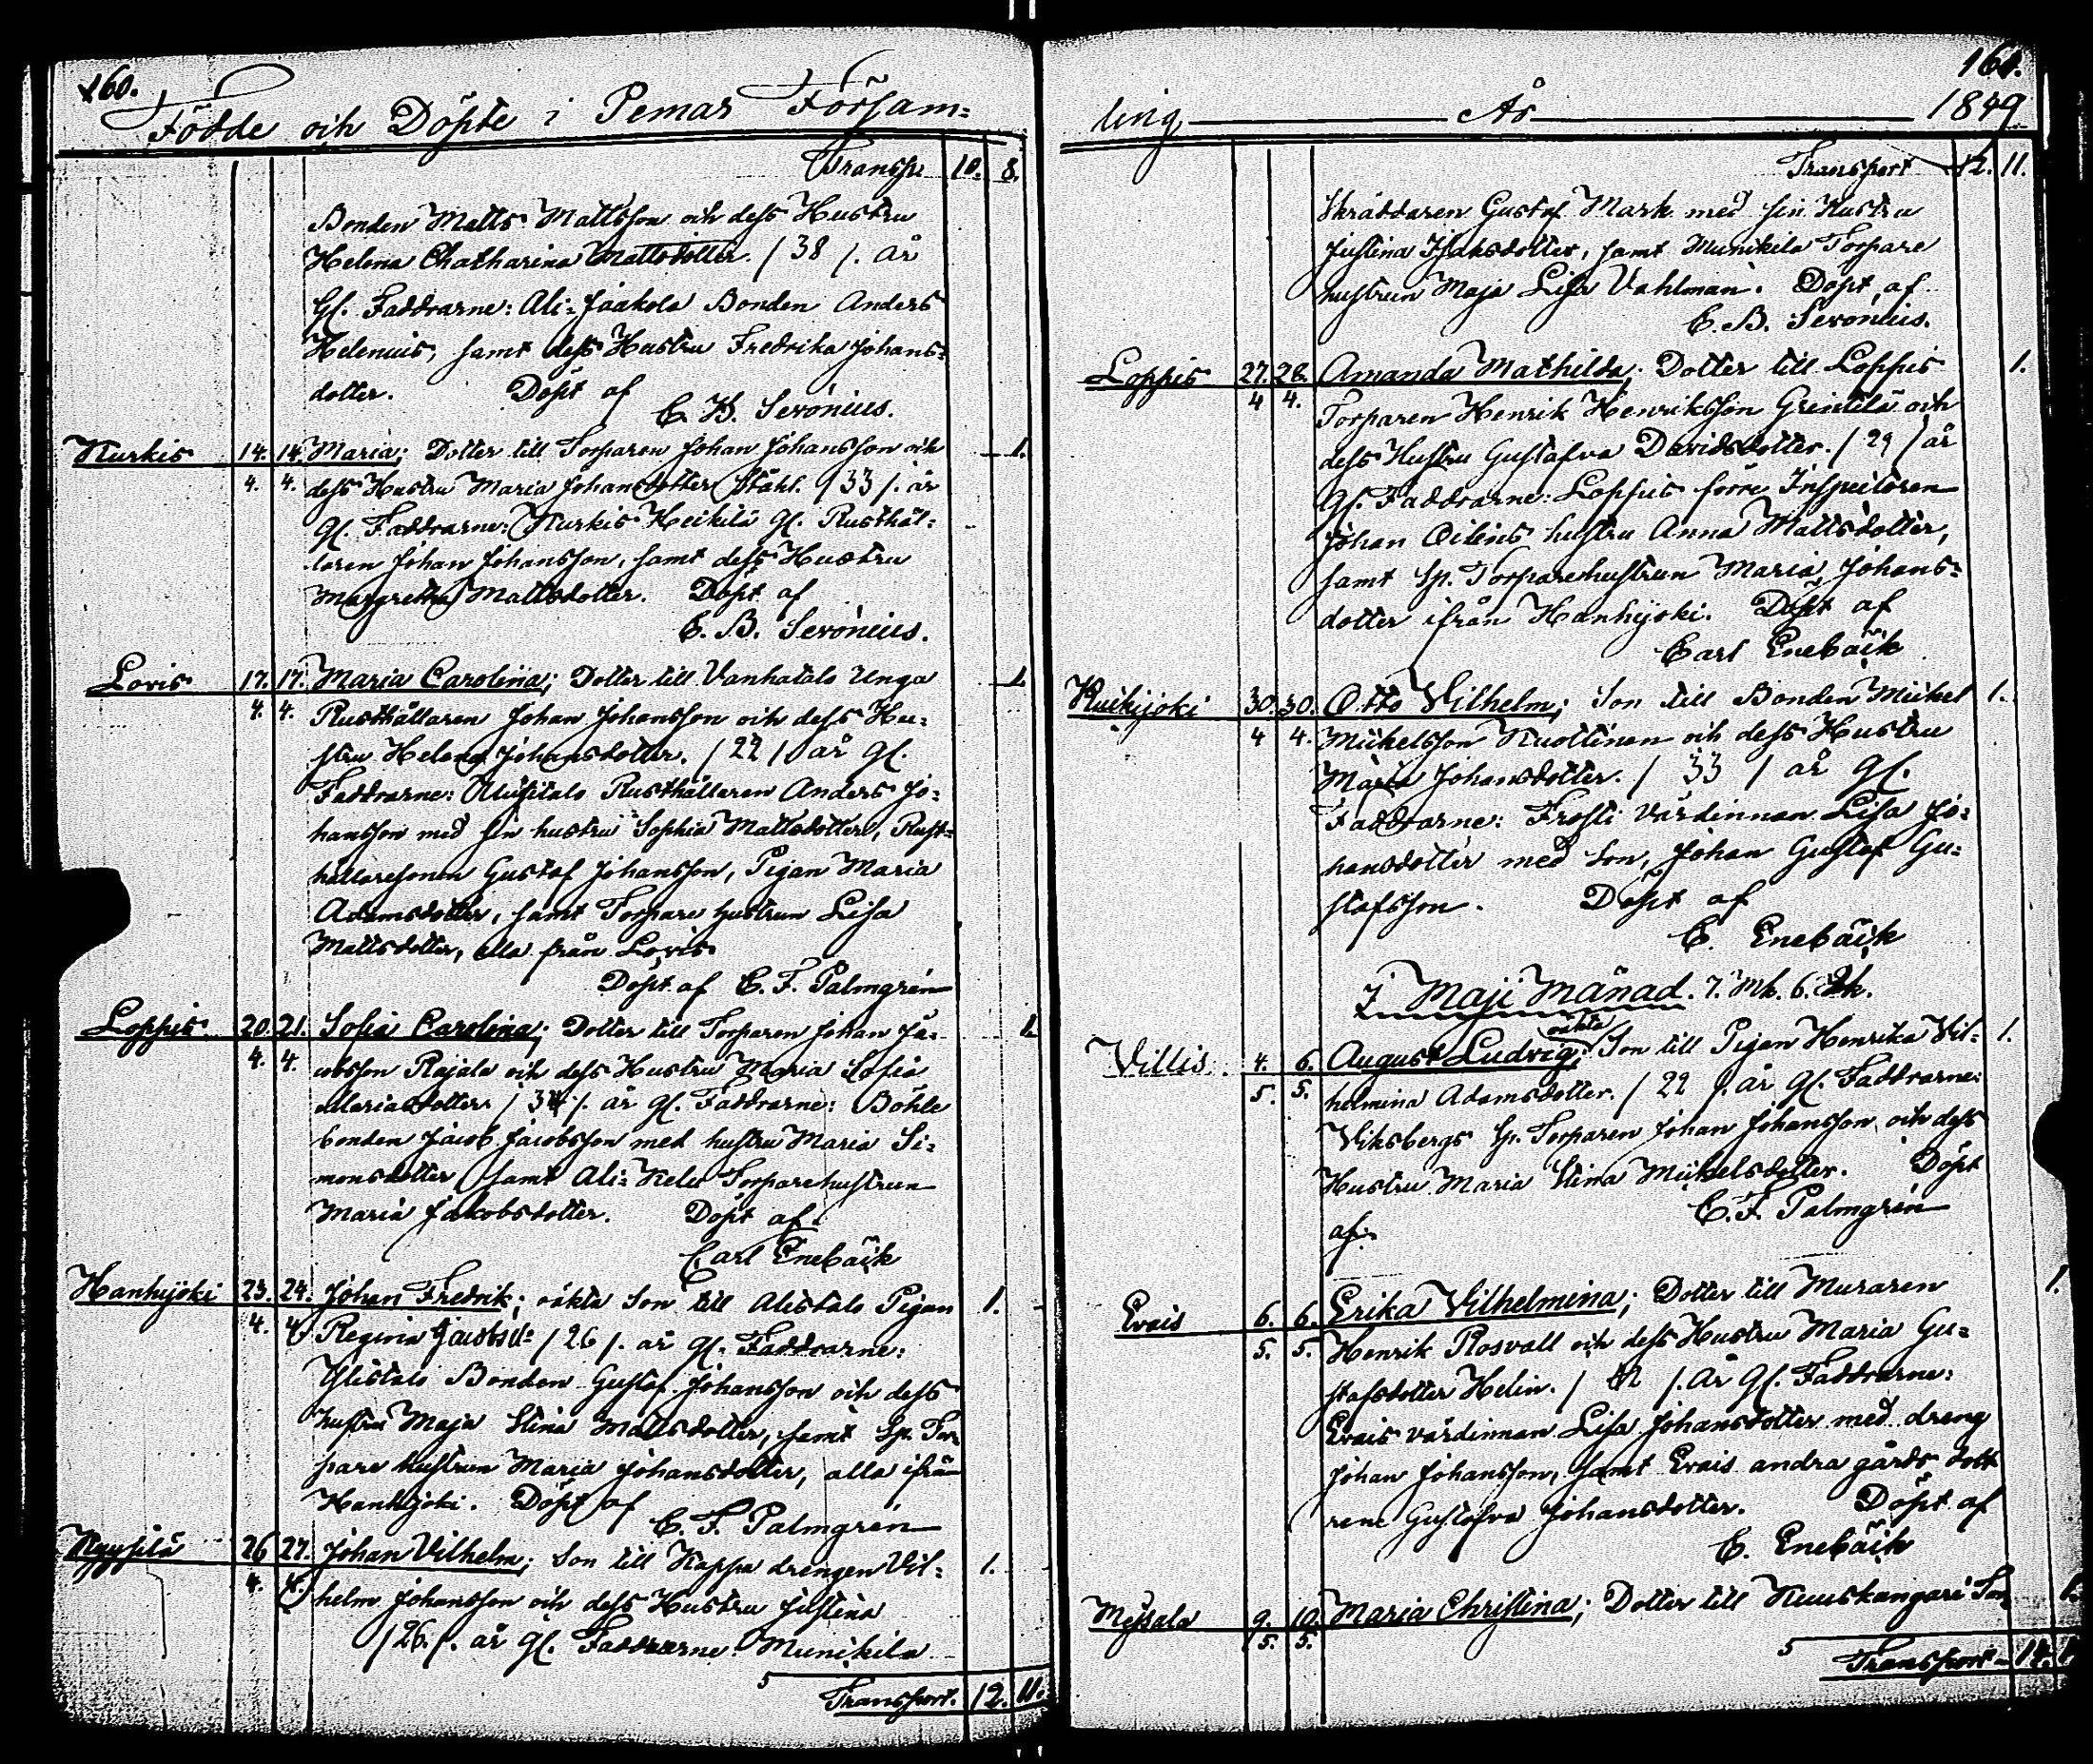 160.
Födde och Döpte i Pemar Församl=
Transp. 10. 8.
Bonden Matts Mattsson och dess Hustru
Helena Chatharina Mattsdotter. / 38 /. år
Gl. Faddrarne: Ali=Jaakola Bonden Anders
Helenius, samt dess Hustru Fredrika Johans=
dotter. Döpt af
C. B. Seronius.
Kurkis 14. 14. Maria; Dotter till Torparen Johan Johansson och 1.
4. 4. dess Hustru Maria Johansdotter Ståhl. / 33 /. år
gl. Faddrarne: Kurkis Heikilä gl. Rusthål=
laren Johan Johansson, samt dess Hustru
Margretha Mattsdotter. Döpt af
C. B. Seronius.
Loris 17. 17. Maria Carolina; Dotter till Vanhatalo Unga 1.
4. 4. Rusthållaren Johan Johansson och dess Hu=
stru Helena Johansdotter. / 22 / år gl.
Faddrarne: Rusthållaren Anders Jo=
hansson med sin hustru Sophia Mattsdotter, Rust=
hållaresonen Gustaf Johansson, Pigan Maria
Adamsdotter, samt Torpare hustrun Lisa
Mattsdotter, alla från Loris
Döpt af C. F. Palmgrén
Loppis 20. 21. Sofia Carolina; Dotter till Torparen Johan Ja= 1.
4. 4. cobsson Rajala och dess Hustru Maria Sofia
Mariasdotter / 34 /. år gl. Faddrarne: Böhle
bonden Jacob Jacobsson med hustru Maria Si=
monsdotter samt Ali=Kelu Torparehustrun
Maria Jakobsdotter. Döpt af
Carl Enebäck
Hanhijoki 23. 24. Johan Fredrik; oäkta Son till Alistalo Pigan 1.
4. 4. Regina Jacobsd= / 26 /. år gl. Faddrarne:
Ylistalo Bonden Gustaf Johansson och dess
hustru Maja Stina Mattsdotter, samt Sp. Tor=
pare hustrun Maria Johansdotter, alla ifrån
Hanhijoki. Döpt af
C. F. Palmgrén
26 27. Johan Vilhelm; Son till Kappa drengen Vil= 1.
4. 4. helm Johansson och dess Hustru Justina
/ 26. /. år gl. Faddrarne: Munikila
5 Transport. 12. 11.
161.
ling År 1849
Transport 12. 11.
Skräddaren Gustaf Mark med sin Hustru
Justina Isaksdotter, samt Munikila Torpare
hustrun Maja Lisa Vahlman. Döpt af
C. B. Seronius.
Loppis 27. 28. Amanda Mathilda; Dotter till Loppis 1.
4 4. Torparen Henrik Henriksson Grintilä och
dess Hustru Gustafva Davidsdotter. / 29 / år
Gl. Faddrarne: Loppis förre Inspectoren
Johan hustru Anna Mattsdotter,
samt Sp. Torparehustrun Maria Johans=
dotter ifrån Hanhijoki. Döpt af
Carl Enebäck
Ruikijoki 30. 30. Otto Vilhelm; Son till Bonden Mickel 1.
4 4. Mickelsson Nuottinen och dess Hustru
Maria Johansdotter. / 33 / år gl.
Faddrarne: Frosti värdinnan Lisa Jo=
hansdotter med Son, Johan Gustaf Gu=
stafsson. Döpt af
C. Enebäck
I Maji Månad. 7. Mk. 6. Qk.
oäkta
Villis 4. 6. August Ludvig; Son till Pigan Henrika Vil= 1.
5. 5. helmina Adamsdotter. / 22 /. år gl. Faddrarne:
Viksbergs Sp. Torparen Johan Johansson och dess
Hustru Maria Stina Mickelsdotter. Döpt
af: C. F. Palmgrén
Evais 6. 6. Erika Vilhelmina; Dotter till Muraren 1.
5. 5. Henrik Rosvall och dess Hustru Maria Gu=
stafsdotter Helin. / 42 /. År gl. Faddrarne:
Evais värdinnan Lisa Johansdotter med dreng
Johan Johansson, samt Evais andra gårds dott
rene Gustafva Johansdotter. Döpt af
C. Enebäck
Meysala 9. 10. Maria Christina; Dotter till Kuuskangari Son 1.
5. 5.
5 Transport 14.